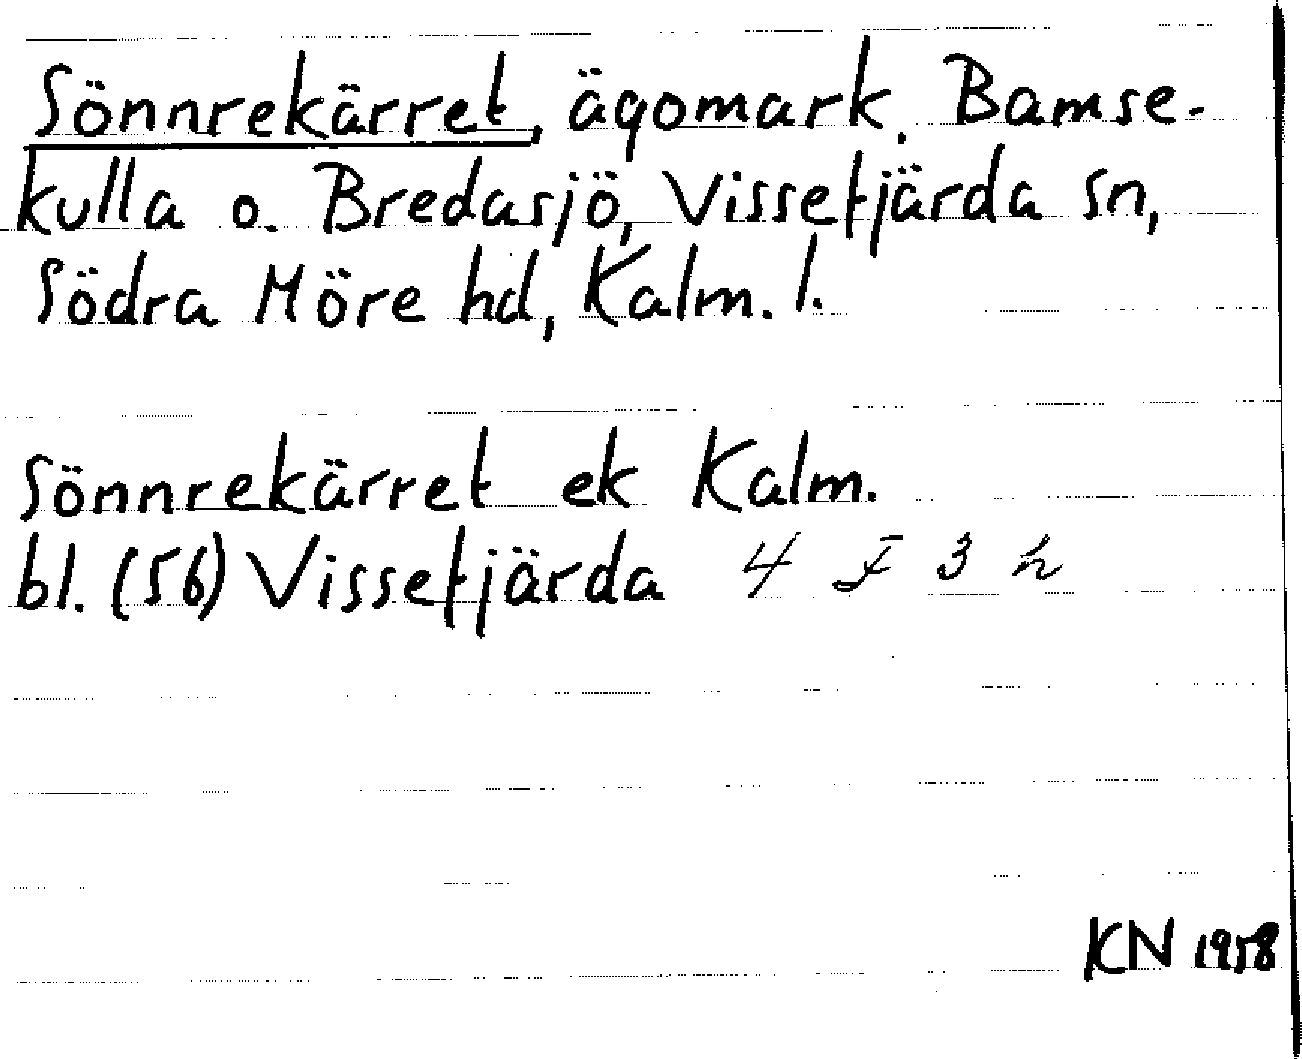 Sönnrekärret, ägomark. Bamse-
kulla o. Bredasjö, Vissefjärda sn,
Södra Möre hd, Kalm. l.
Sönnrekärret ek Kalm.
bl. (56) Vissefjärda 4 F 3 h
KN 1958